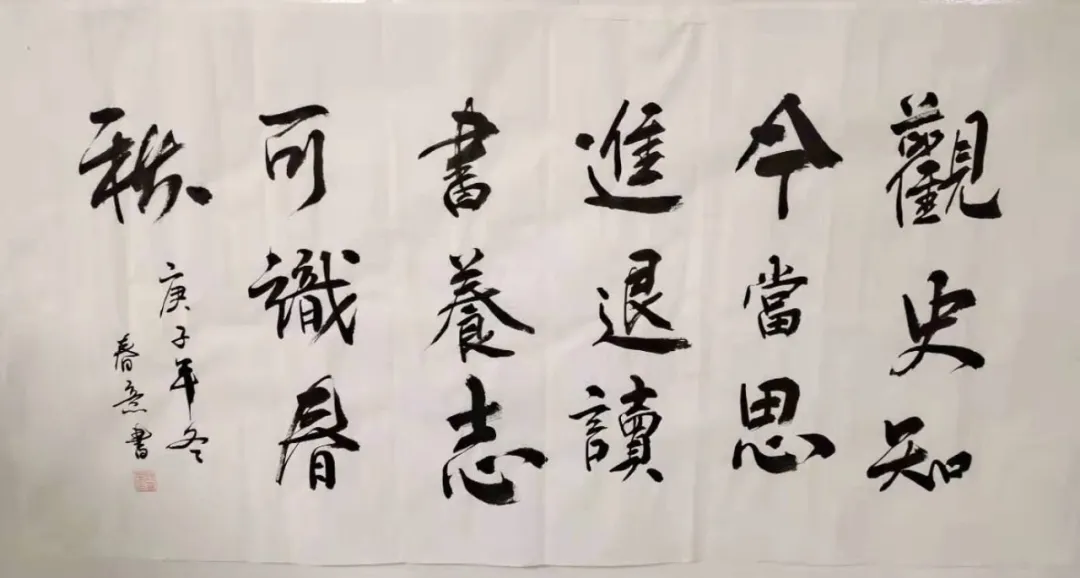 觀史知
今當思
進退讀
書養志
可識春
秋
庚子年冬
春意書